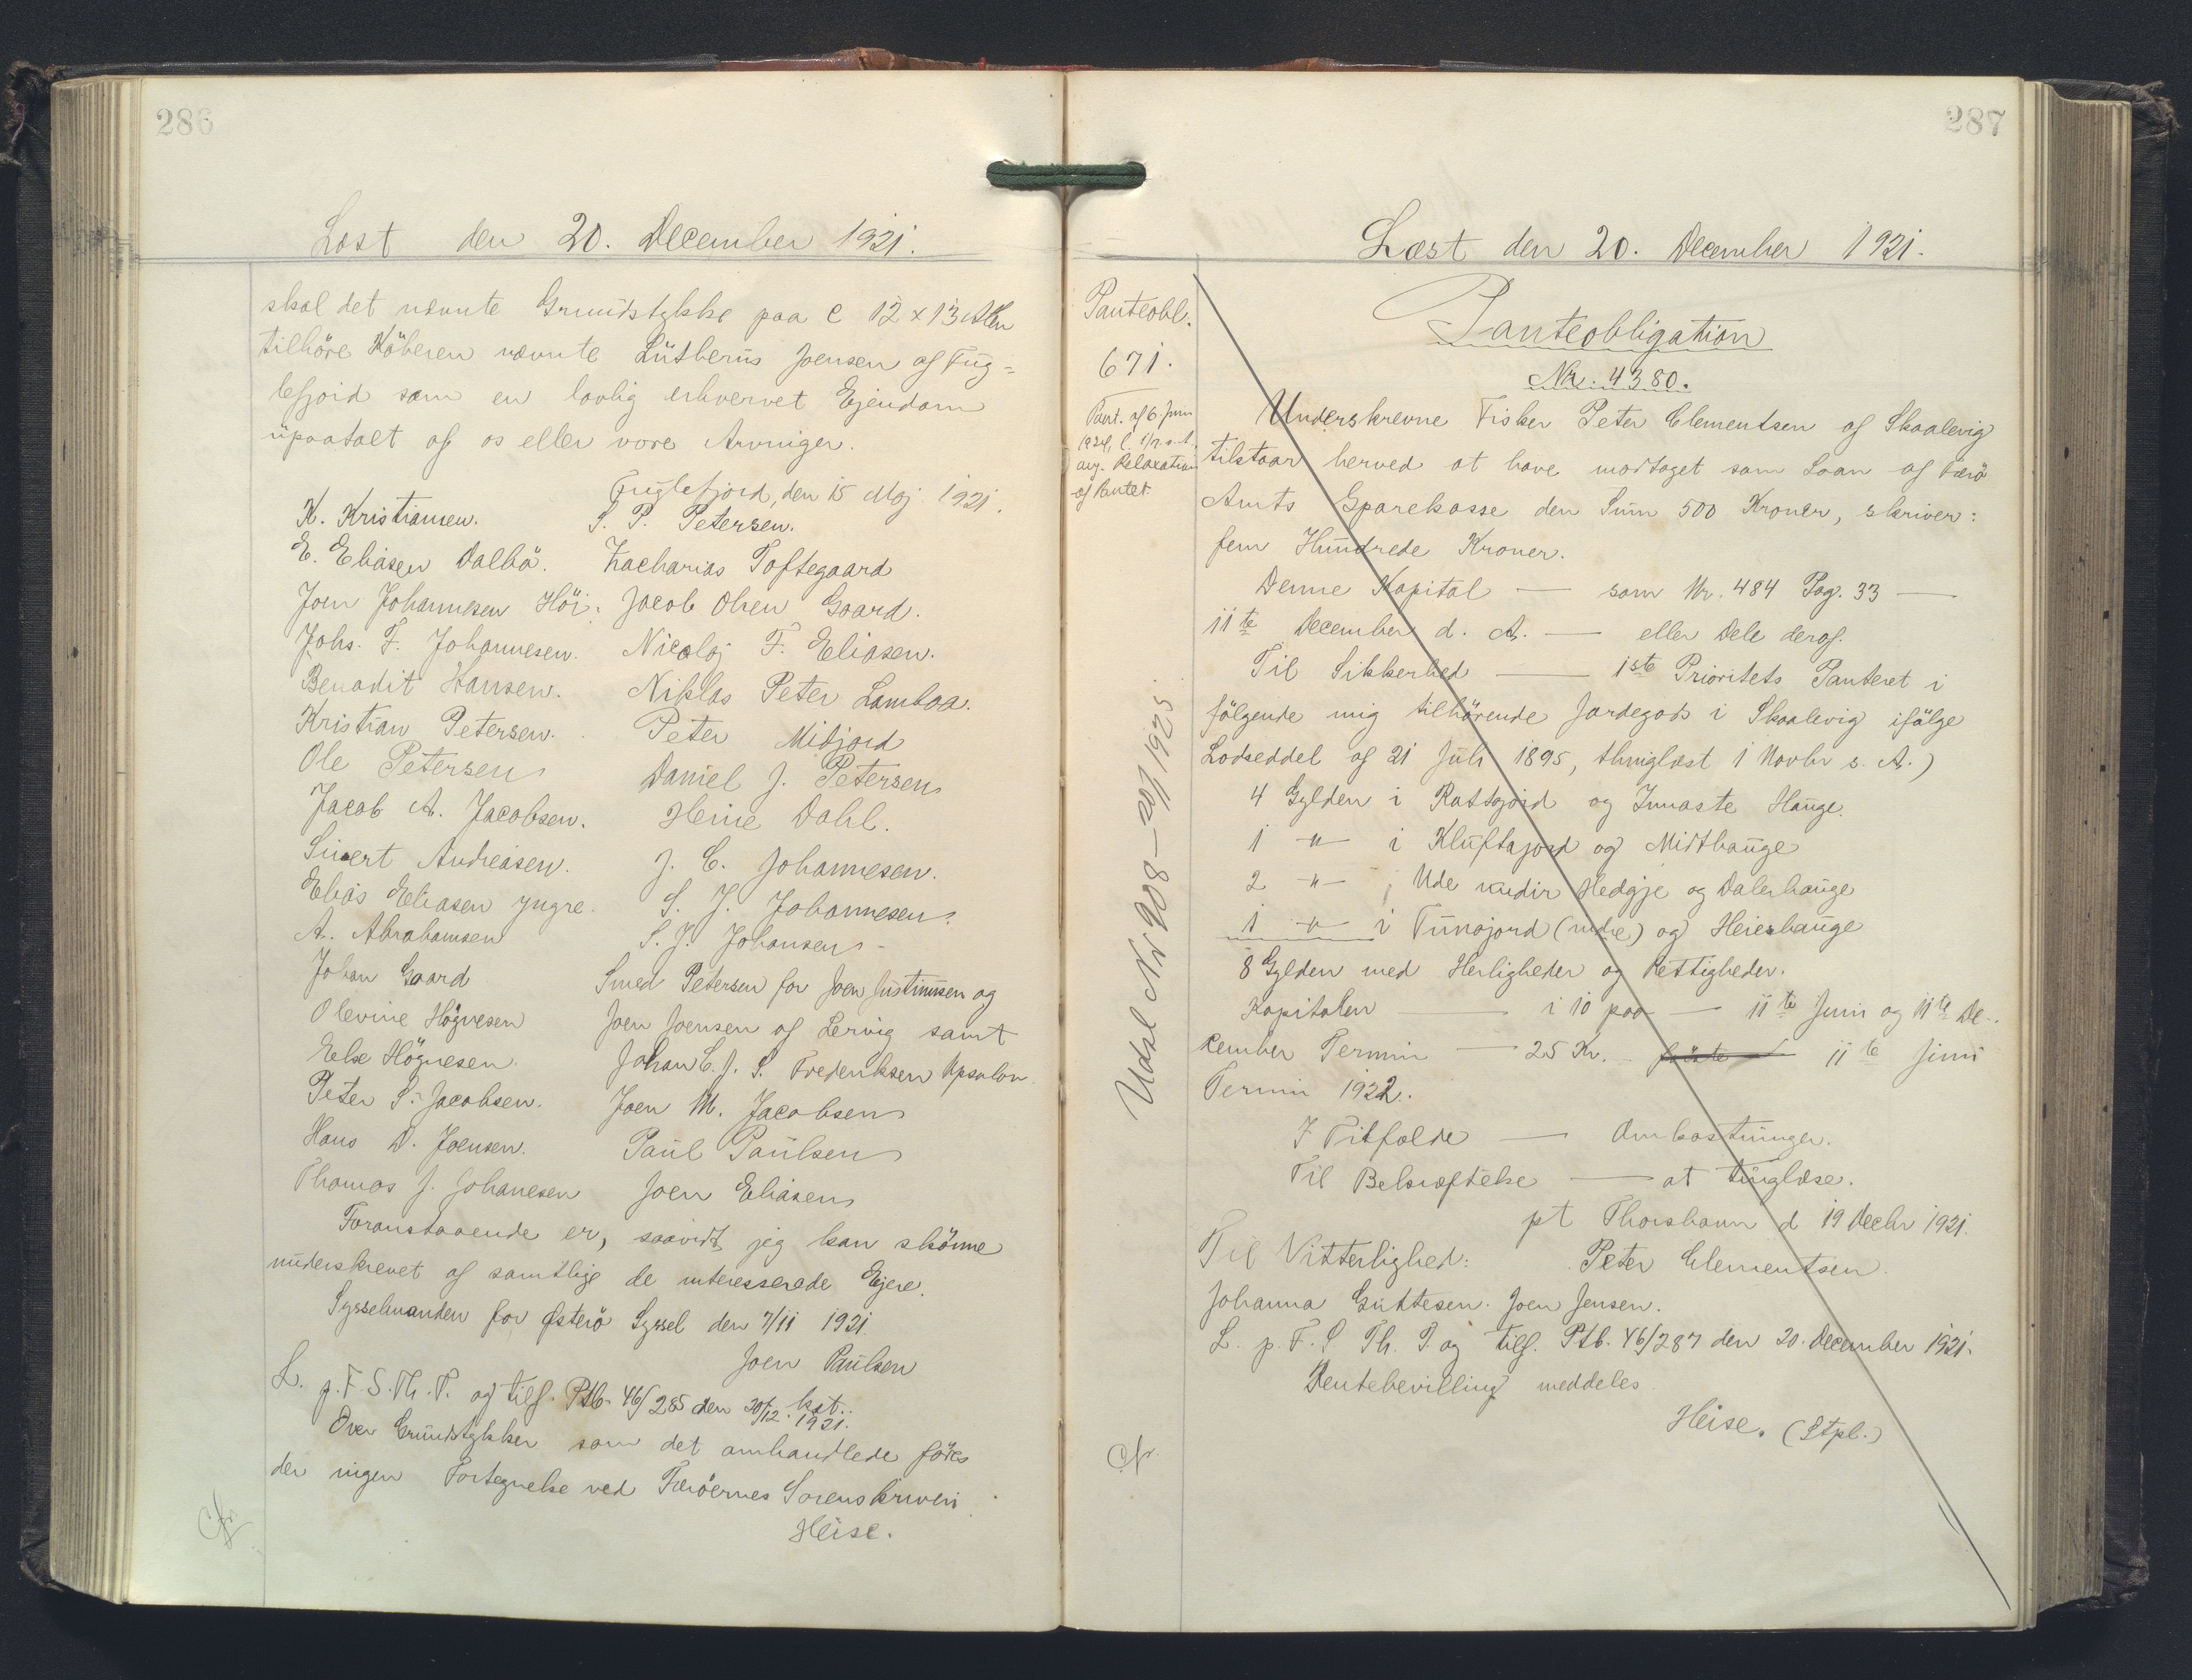 286
Læst den 20. December 1921.
skal det nævnte Grundstykke paa c 12 x 13 Alen
tilhöre Köberen nævnte Lütherus Joensen af Fug=
lefjord som en lovlig erhvervet Ejendom
upaatalt af os eller vore Arvinger.
Fuglefjord, den 15 Maj 1921.
K. Kristiansen. S. P. Petersen.
E. Eliasen Dalbö. Zacharias Toftegaard
Joen Johannesen Höi. Jacob Olsen Gaard.
Johs. F. Johannesen. Nicolaj F. Eliasen.
Benadit Hansen. Niklas Peter Lamboa.
Kristian Petersen. Peter Midjord
Ole Petersen Daniel J. Petersen
Jacob A. Jacobsen. Heine Dahl.
Sivert Andreasen. J. C. Johannesen.
Elias Eliasen yngre. S. J. Johannesen.
A. Abrahamsen S. J. Johansen
Johan Gaard Smed Petersen for Joen Justinusen og
Olevine Högnesen Joen Joensen af Lervig samt
Else Högnesen. Johan C. J. S. Frederiksen Upsalon
Peter S. Jacobsen. Joen M. Jacobsen
Hans D. Joensen. Paul Paulsen
Thomas J. Johanesen Joen Eliasen
Foranstaaende er, saavidt jeg kan skönne
underskrevet af samtlige de interesserede Ejere.
Sysselmanden for Østerö Syssel den 7/11 1921
Joen Paulsen
kst.
L. p. F. S. Th. T. og tilf. Ptb. 46/285 den 20/12. 1921.
Over Grundstykker som det omhandlede föres
der ingen Fortegnelse ved Færöernes Sorenskriveri.
Heise.
Cfr.
287
Læst den 20. December 1921.
Panteobl.
671.
Pant. af 6 Juni
1924, l. 1/7. s. A.
ang. Relaxation
af Pantet.
Udsl Nr 908 - 20/7 1925.
Cfr.
Panteobligation
Nr. 4380.
Underskrevne Fisker Peter Clementsen af Skaalevig
tilstaar herved at have modtaget som Laan af Færö
Amts Sparekasse den Sum 500 Kroner, skriver:
fem Hundrede Kroner.
Denne Kapital — som Nr. 484 Pag. 33 —
11te December d. A. — eller Dele deraf.
Til Sikkerhed — 1ste Prioritets Panteret i
fölgende mig tilhörende Jordegods i Skaalevig ifölge
Lodseddel af 21 Juli 1895, thinglæst 1 Novbr s. A.)
4 Gylden i Rattajord og Innaste Hauge.
1 -"- i Kluftajord og Midthauge
2 -"- i Ude undir Hedgje og Dalerhauge
1 -"- i Tunajord (indre) og Heiershauge
8 Gylden med Herligheder og Rettigheder.
Kapitalen — i 10 paa — 11te Juni og 11te De-
cember Termin — 25 Kr. — förste 11te Juni
Termin 1922.
I Tilfælde — Omkostninger.
Til Bekræftelse — at tinglæse.
pt Thorshavn d 19 Decbr 1921.
Til Vitterlighed: Peter Clementsen.
Johanna Guttesen. Joen Jensen.
L. p. F. S Th. T. og tilf. Ptb. 46/287 den 20. December 1921.
Rentebevilling meddeles
Heise. (Stpl.)